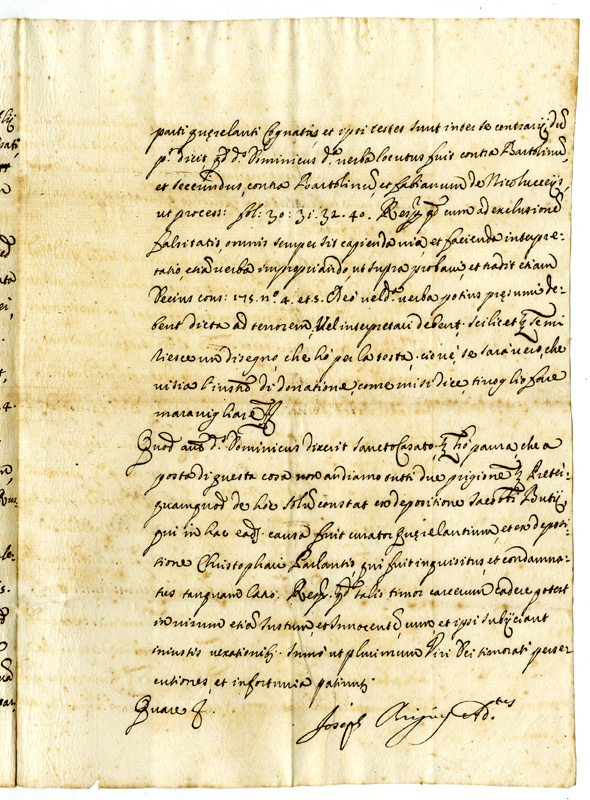 parti querelanti Cognatus, et ipsi testes sunt inter se contrarij, dũ
p.s dicit qd d.s Dominicus d.a verba locutus fuit contra Bartolinũ,
et secundus, contra Bartolinũ, et fabianum de Nicoluccijs,
ut process: fol: 30: 31. 32. 40. Resp. qd cum ad exclusionẽ
falsitatis, omnis semper sit capienda via, et facienda interpre-
tatio, etiã verba impropriando, ut supra probavi, et tradit etiam
Decius cons: 175. n.o 4. et 5. Ideo vel d.a verba potius presumi de-
bent dicta ad tenorem, Vel interpretari debent. scilicet se mi
riesce un disegno, che hò per la testa, cio è, se sarà vero, che
vi sia l'instro di donatione, come mi si dice, ti voglio fare
maravigliare
Quod aut d.s Dominicus dixerit sancto Casato. hò paura, che a
posta di questa cosa non andiamo tutti due prigione Preter-
quamquod de hoc solũ constat ex depositione Jacobi Butij,
qui in hac ead. causa fuit curator Querelantium, et ex deposi-
tione Christophari Parlantis, qui fuit inquisitus et condemna-
tus tanquam Casso. Resp. qd talis timor carcerum cadere potest
in virum etiã Justum, et Innocentẽ, cum et ipsi subijciantur
iniustis vexationib. Immo ut plurimum Viri Dei timorati perse-
cutiones, et infortunia patiunt.
Quare
Joseph Ad.tus